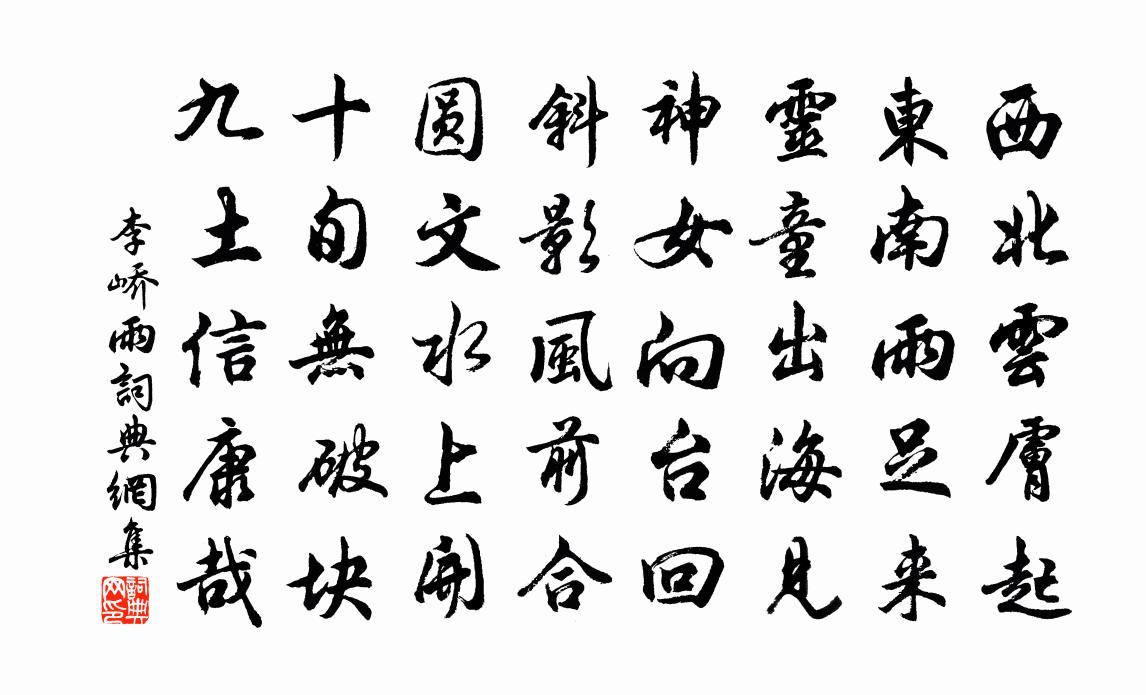 西北雲膚起
東南雨足来
靈童出海見
神女向台回
斜影風前合
圓文水上開
十旬無破块
九土信康哉
李峤雨詞典網集
詞典网印